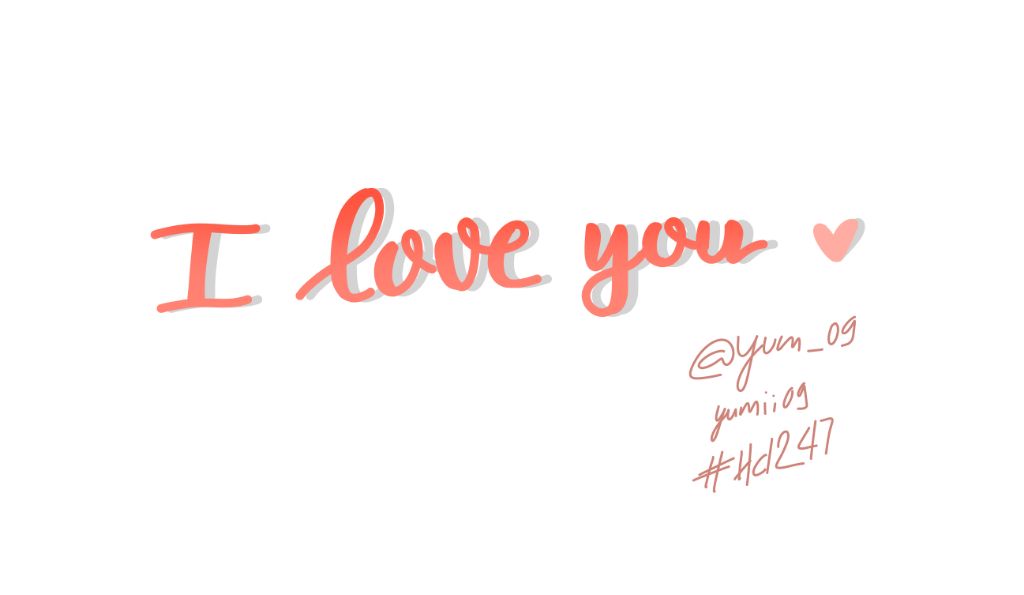 I love you
@yum_09
yumii09
#Hd247